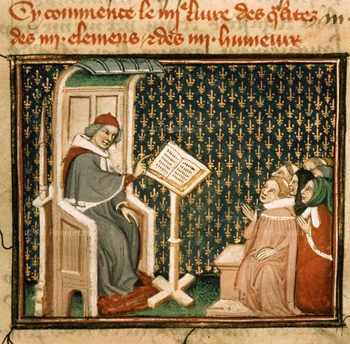 Cy commence le iiij^e liure des q̃litez
des iiij. elemens ⁊ des iiij. humeurs